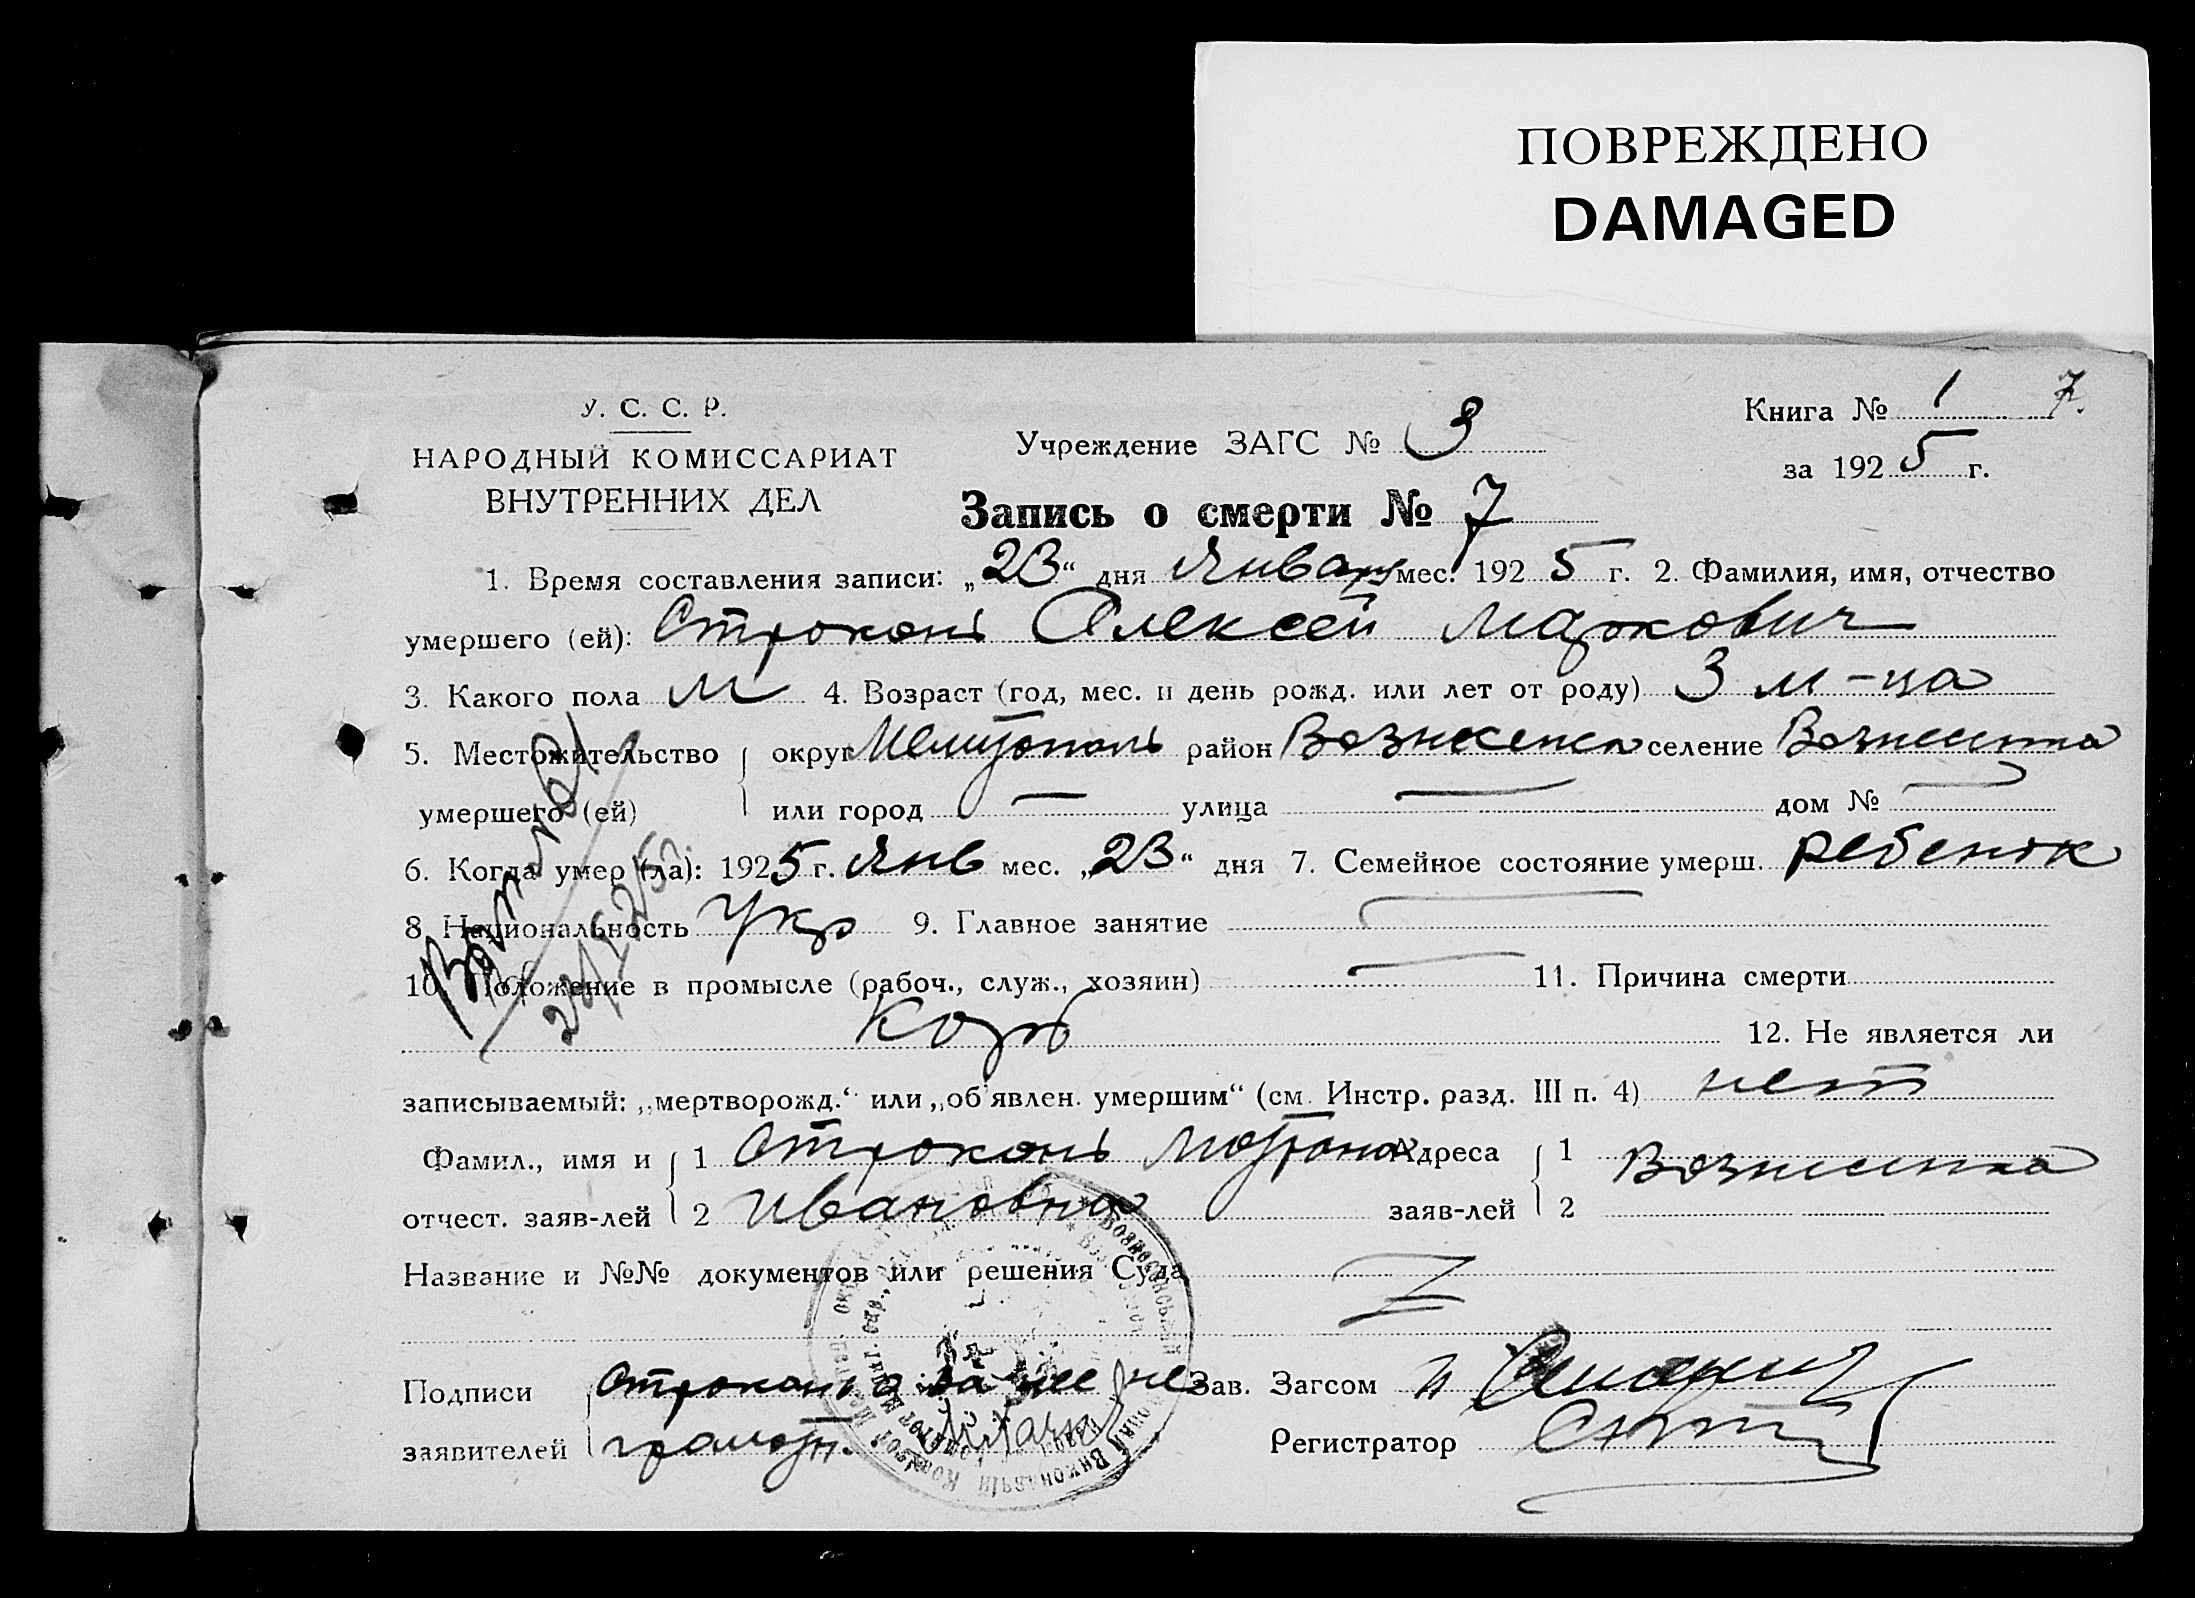 ПОВРЕЖДЕНО
DAMAGED
У. С. С. Р.
НАРОДНЫЙ КОМИССАРИАТ
ВНУТРЕННИХ ДЕЛ
Учреждение ЗАГС № 3
Книга № 1 7.
за 1925 г.
Запись о смерти № 7
1. Время составления записи: „23“ дня Января мес. 1925 г. 2. Фамилия, имя, отчество
умершего (ей): Строкань Алексей Маркович
3. Какого пола М 4. Возраст (год, мес. и день рожд. или лет от роду) 3 м-ца
5. Местожительство округ Мелитополь район Вознесенск селение Вознесенка
умершего (ей) или город — улица — дом № —
6. Когда умер (ла): 1925 г. Янв мес. „23“ дня 7. Семейное состояние умерш. ребенок
8. Национальность Укр 9. Главное занятие —
10. Положение в промысле (рабоч., служ., хозяин) — 11. Причина смерти
Корь
12. Не является ли
записываемый: „мертворожд.“ или „об'явлен. умершим“ (см. Инстр. разд. III п. 4) нет
Фамил., имя и 1 Строкань Мотрона Адреса 1 Вознесенка
отчест. заяв-лей 2 Ивановна заяв-лей 2
Название и №№ документов или решения Суда
Подписи Строкань а за нее не Зав. Загсом
заявителей грамотн. Регистратор